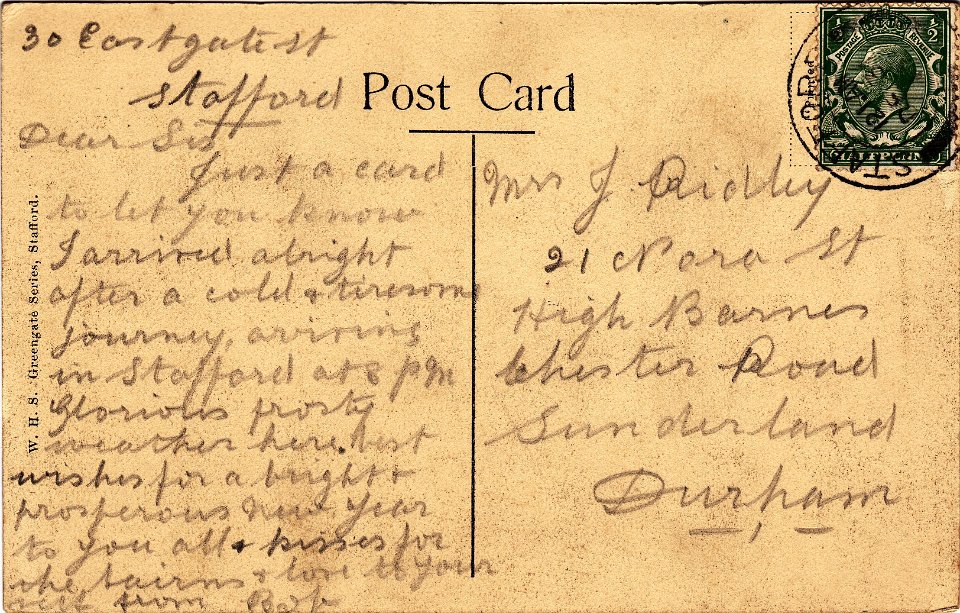 30 Eastgate St
Stafford
Dear Sis
Just a card
to let you know
I arrived alright
after a cold & tiresome
journey, arriving
in Stafford at 8 pm
Glorious frosty
weather here. best
wishes for a bright &
prosperous New Year
to you all & kisses for
the bairns & love to your
self from Bob
Post Card
Mrs J Ridley
21 Nora St
High Barnes
Chester Road
Sunderland
Durham
W. H. S. Greengate Series, Stafford.
POSTAGE REVENUE
½ ½
HALFPENNY
STAFFORD